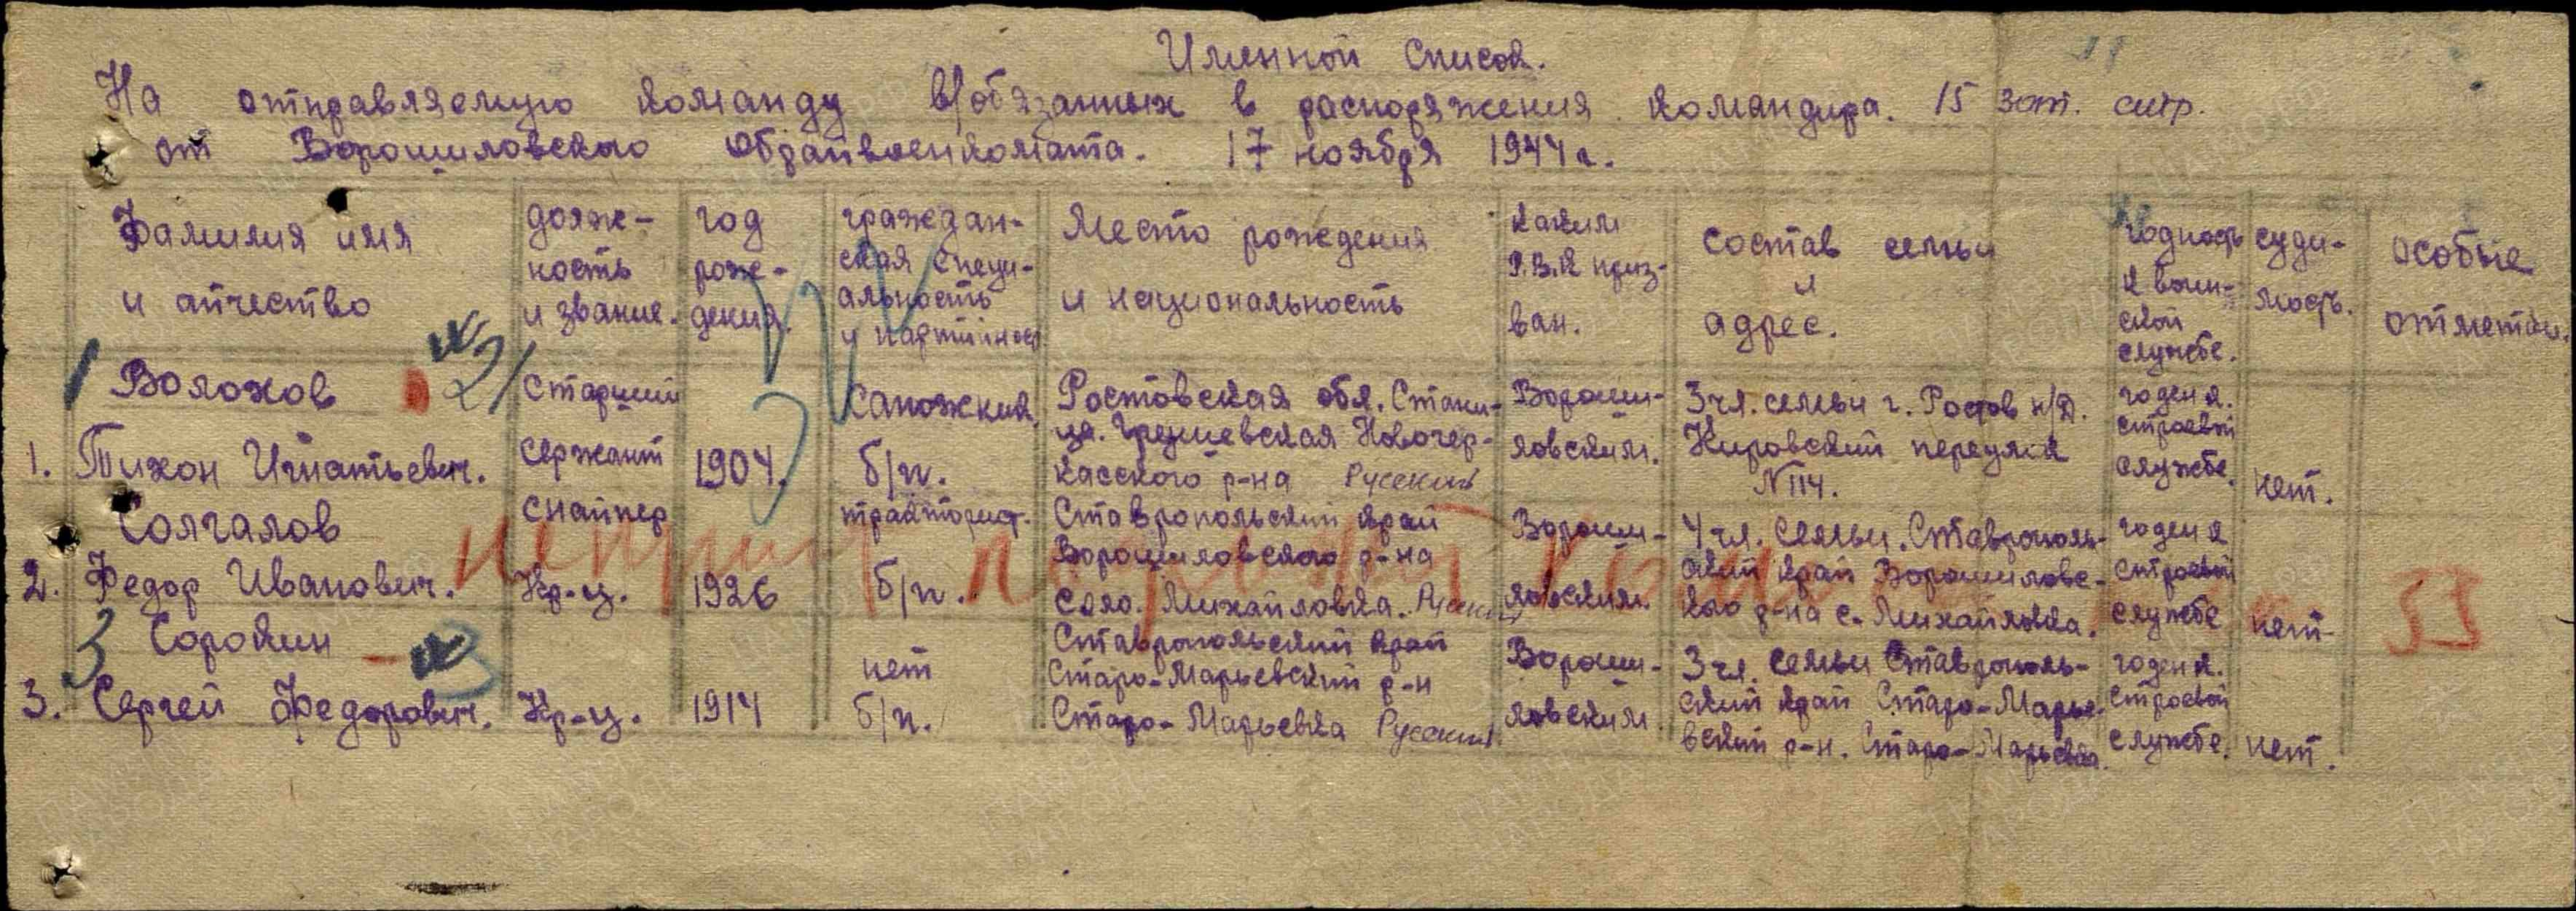 Именной список.
На отправляемую команду в/обязанных в распоряжения командира. 15 зат. стр.
от Ворошиловского Обрайвоенкомата. 17 ноября 1944 г.
Фамилия имя
и отчество
долж-
ность
и звание.
год
рож-
дения.
граждан-
ская специ-
альность
и партийност
Место рождения
и национальность
каким
Р.В.К приз-
ван.
состав семьи
и
адрес.
годность
к воин-
ской
службе.
суди-
мость.
особые
отметки.
1 Волохов
1. Тихон Игнатьевич.
Старший
Сержант
снайпер
1904.
сапожник
б/п.
Ростовская обл. Стани-
ца. Грушевская Новочер-
касского р-на Русский
Вороши-
ловским.
3 чл. семьи г. Ростов н/Д.
Кировский переулок
№ 114.
годен к.
строевой
службе.
нет.
Солгалов
2. Федор Иванович.
Кр-ц.
1926
тракторист.
б/п.
Ставропольский край
Ворошиловского р-на
село. Михайловка. Русский
Вороши-
ловским
4 чл. Семьи. Ставрополь-
ский край Ворошиловс-
кого р-на с. Михайловка.
годен к
строевой
службе
нет
53
3 Сорокин
3. Сергей Федорович.
Кр-ц.
1914
нет
б/п.
Ставропольский край
Старо-Марьевский р-н
Старо-Марьевка Русский.
Вороши-
ловским
3 чл. семьи Ставрополь-
ский край Старо-Марье-
вский р-н. Старо-Марьевка.
годен к.
строевой
службе.
нет.